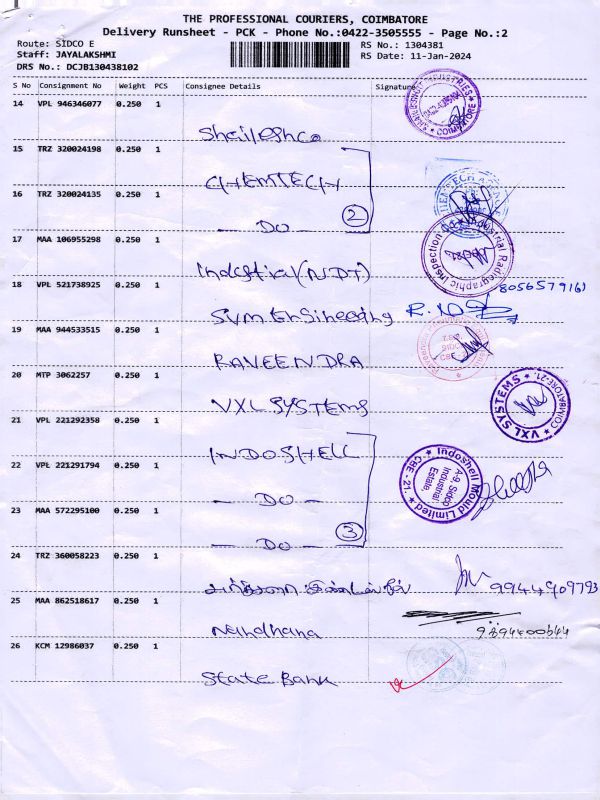 THE PROFESSIONAL COURIERS, COIMBATORE
Delivery Runsheet - PCK - Phone No.:0422-3505555 - Page No.:2
Route: SIDCO E
RS No.: 1304381
Staff: JAYALAKSHMI
RS Date: 11-Jan-2024
DRS No.: DCJB130438102
S No Consignment No Weight PCS Consignee Details Signature
14 VPL 946346077 0.250 1
COIMBATORE
Shaileshco
15 TRZ 320024198 0.250 1
CHEMTECH
16 TRZ 320024135 0.250 1
- DO - 2
17 MAA 106955298 0.250 1
Industrial Radiographic Inspection
Industrial (NDT)
18 VPL 521738925 0.250 1
8056579161
Sum Engineering R.
19 MAA 944533515 0.250 1
RAVEENDRA
20 MTP 3062257 0.250 1
VXL SYSTEMS
VXL SYSTEMS COIMBATORE-21.
21 VPL 221292358 0.250 1
INDOSHELL
22 VPL 221291794 0.250 1
Indoshell Mould Limited
A-9, Sidco
Industrial
Estate,
CBE-21.
- DO -
23 MAA 572295100 0.250 1
- DO - 3
24 TRZ 360058223 0.250 1
9944909793
25 MAA 862518617 0.250 1
Nandhana
9894400644
26 KCM 12986037 0.250 1
State Bank